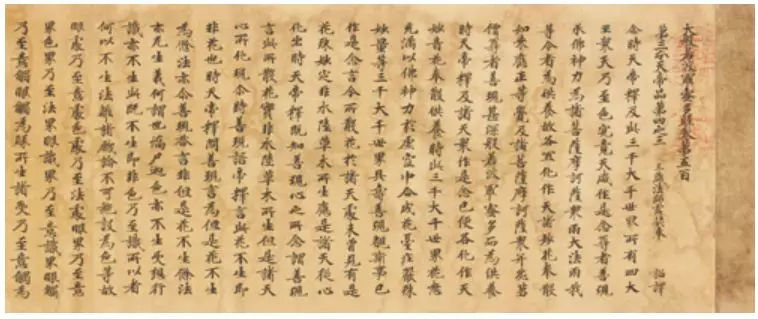 大般若波羅蜜多經卷第五百
第三分天帝品第四之三 三藏法師玄奘奉 詔譯
尒時天帝釋及此三千大千世界所有四大
王衆天乃至色究竟天咸作是念尊者善現
承佛神力為諸菩薩摩訶薩衆雨大法雨我
等今者為供養故各宜化作天諸妙花奉散
如來應正等覺及諸菩薩摩訶薩衆并苾芻
僧尊者善現甚深般若波羅蜜多而為供養
時天帝釋及諸天衆作是念已便各化作天
妙音花奉散供養時此三千大千世界花悉
充滿以佛神力於虛空中合成花臺莊嚴殊
妙量等三千大千世界具壽善現覩斯事已
作是念言今所散花於諸天處未曾見有是
花殊妙定非水陸草木所生應是諸天從心
化出時天帝釋既知善現心之所念謂善現
言此所散花實非水陸草木所生但是諸天
心所化現尒時善現語帝釋言此花不生即
非花也時天帝釋問善現言為但是花不生
為餘法亦尒善現答言非但是花不生餘法
亦尒生義何謂也憍尸迦色亦不生受想行
識亦不生此既不生即非色乃至識所以者
何以不生法離諸戲論不可施設為色等故
眼處乃至意處色處乃至法處眼界乃至意
界色界乃至法界眼識界乃至意識界眼觸
乃至意觸眼觸為緣所生諸受乃至意觸為